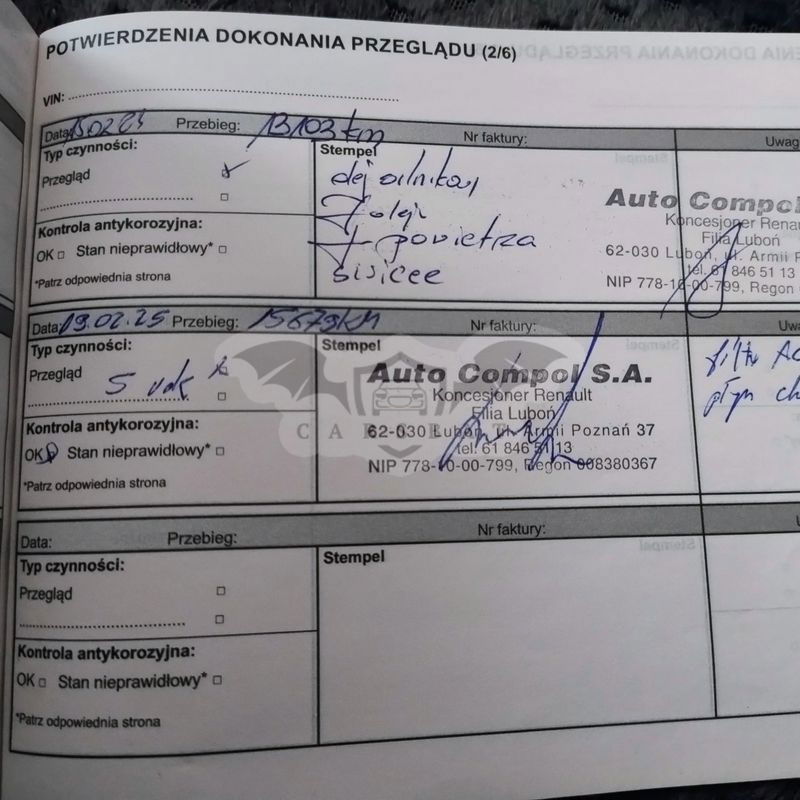 POTWIERDZENIA DOKONANIA PRZEGLĄDU (2/6)
VIN:
Data: Przebieg: 13103 km Nr faktury: Uwag
Typ czynności: Stempel
Przegląd
olej silnikowy
Kontrola antykorozyjna:
F olej
OK Stan nieprawidłowy*
F powietrza
*Patrz odpowiednia strona
Auto Compol
Koncesjoner Renau
Filia Luboń
62-030 Luboń, ul. Armii P
tel. 61 846 51 13
NIP 778-10-00-799, Regon
Data: 19.02.25 Przebieg: 15679KM Nr faktury: Uwa
Typ czynności: Stempel
Przegląd
5 rok
Kontrola antykorozyjna:
OK Stan nieprawidłowy*
*Patrz odpowiednia strona
Auto Compol S.A.
Koncesjoner Renault
Filia Luboń
62-030 Luboń, ul. Armii Poznań 37
tel. 61 846 51 13
NIP 778-10-00-799, Regon 008380367
filtr
płyn ch
Data: Przebieg: Nr faktury: U
Typ czynności: Stempel
Przegląd
Kontrola antykorozyjna:
OK Stan nieprawidłowy*
*Patrz odpowiednia strona